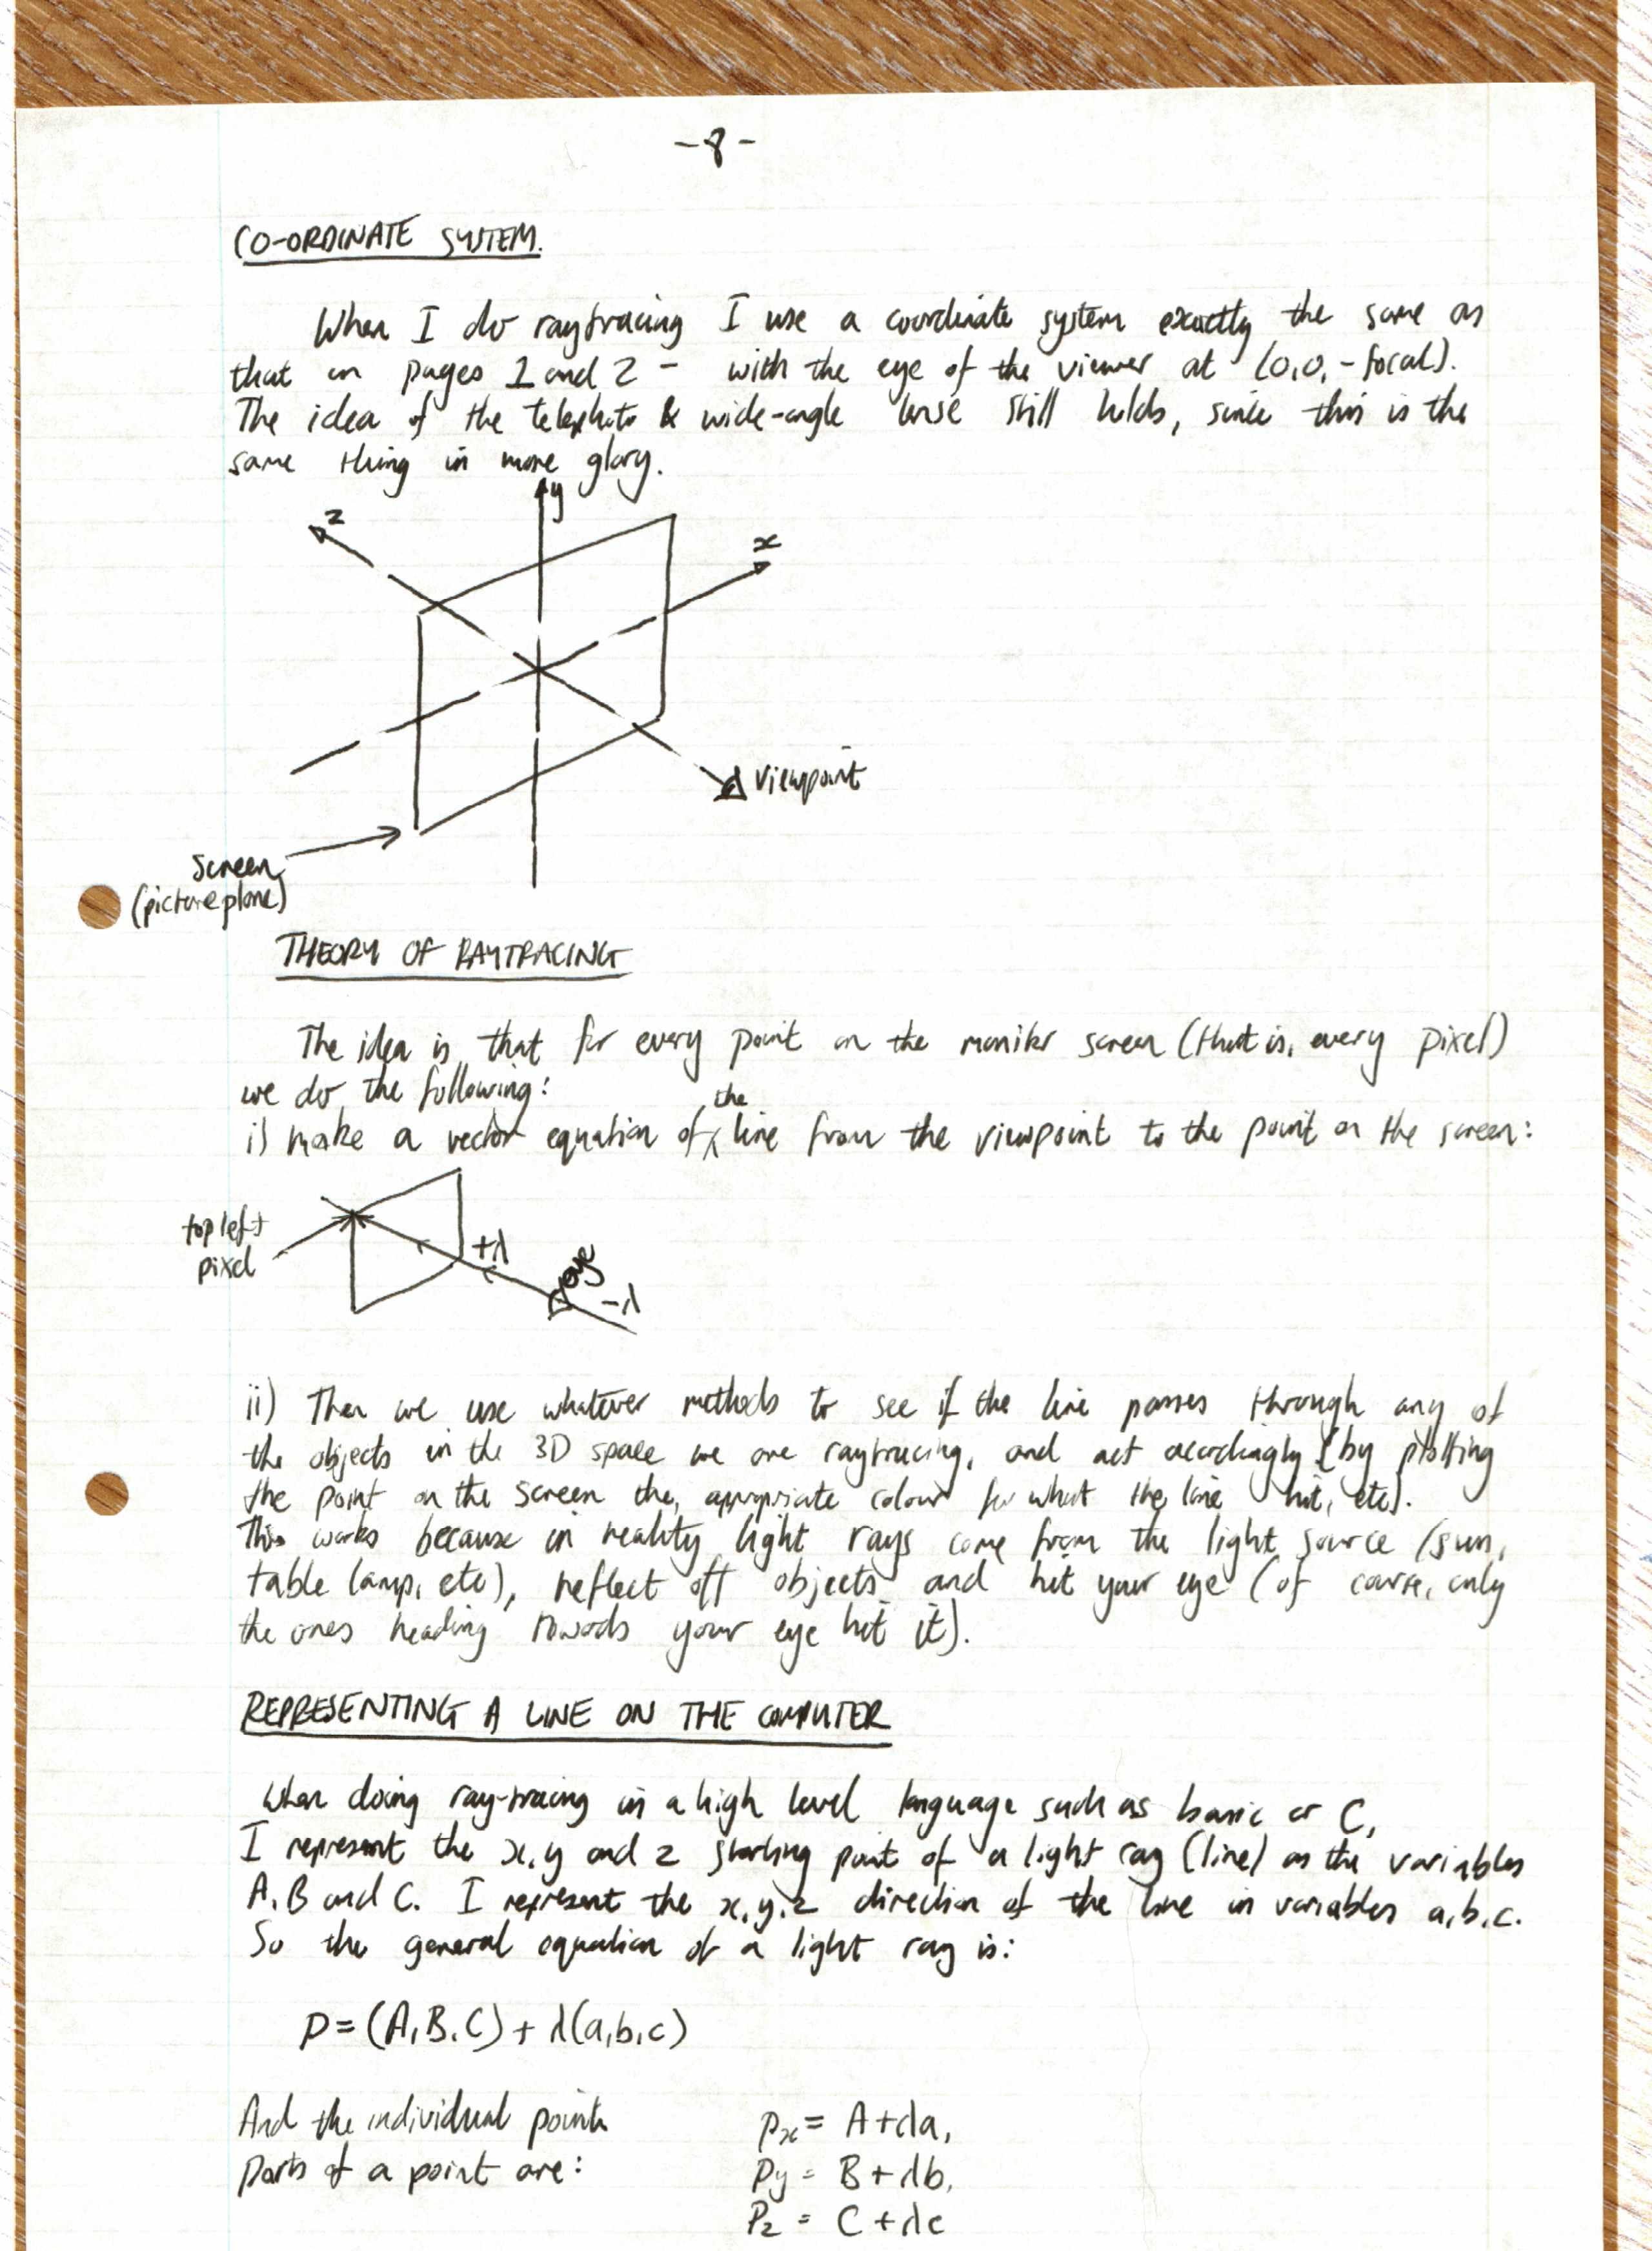 -8-
CO-ORDINATE SYSTEM.
When I do raytracing I use a coordinate system exactly the same as
that on pages 1 and 2 - with the eye of the viewer at (0,0,-focal).
The idea of the telephoto & wide-angle lense still holds, since this is the
same thing in more glory.
y
z
x
Viewpoint
Screen
(picture plane)
THEORY OF RAYTRACING
The idea is that for every point on the monitor screen (that is, every pixel)
we do the following:
i) make a vector equation of the line from the viewpoint to the point on the screen:
top left
pixel
+λ
eye
-λ
ii) Then we use whatever methods to see if the line passes through any of
the objects in the 3D space we are raytracing, and act accordingly (by plotting
the point on the screen the appropriate colour for what the line hit, etc).
This works because in reality light rays come from the light source (sun,
table lamp, etc), reflect off objects and hit your eye (of course, only
the ones heading towards your eye hit it).
REPRESENTING A LINE ON THE COMPUTER
When doing ray-tracing in a high level language such as basic or C,
I represent the x,y and z starting point of a light ray (line) as the variables
A,B and C. I represent the x,y,z direction of the line in variables a,b,c.
So the general equation of a light ray is:
p=(A,B,C)+λ(a,b,c)
And the individual points
parts of a point are:
px = A+λa,
py = B+λb,
pz = C+λc